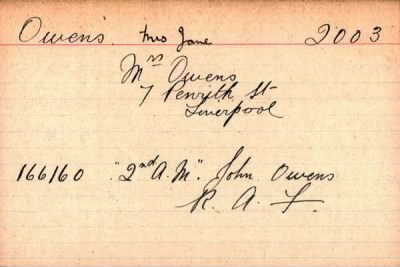 Owens Mrs Jane 2003
Mrs Owens
7 Penrith St
Liverpool
166160 "2nd A.M". John Owens
R. A. F.